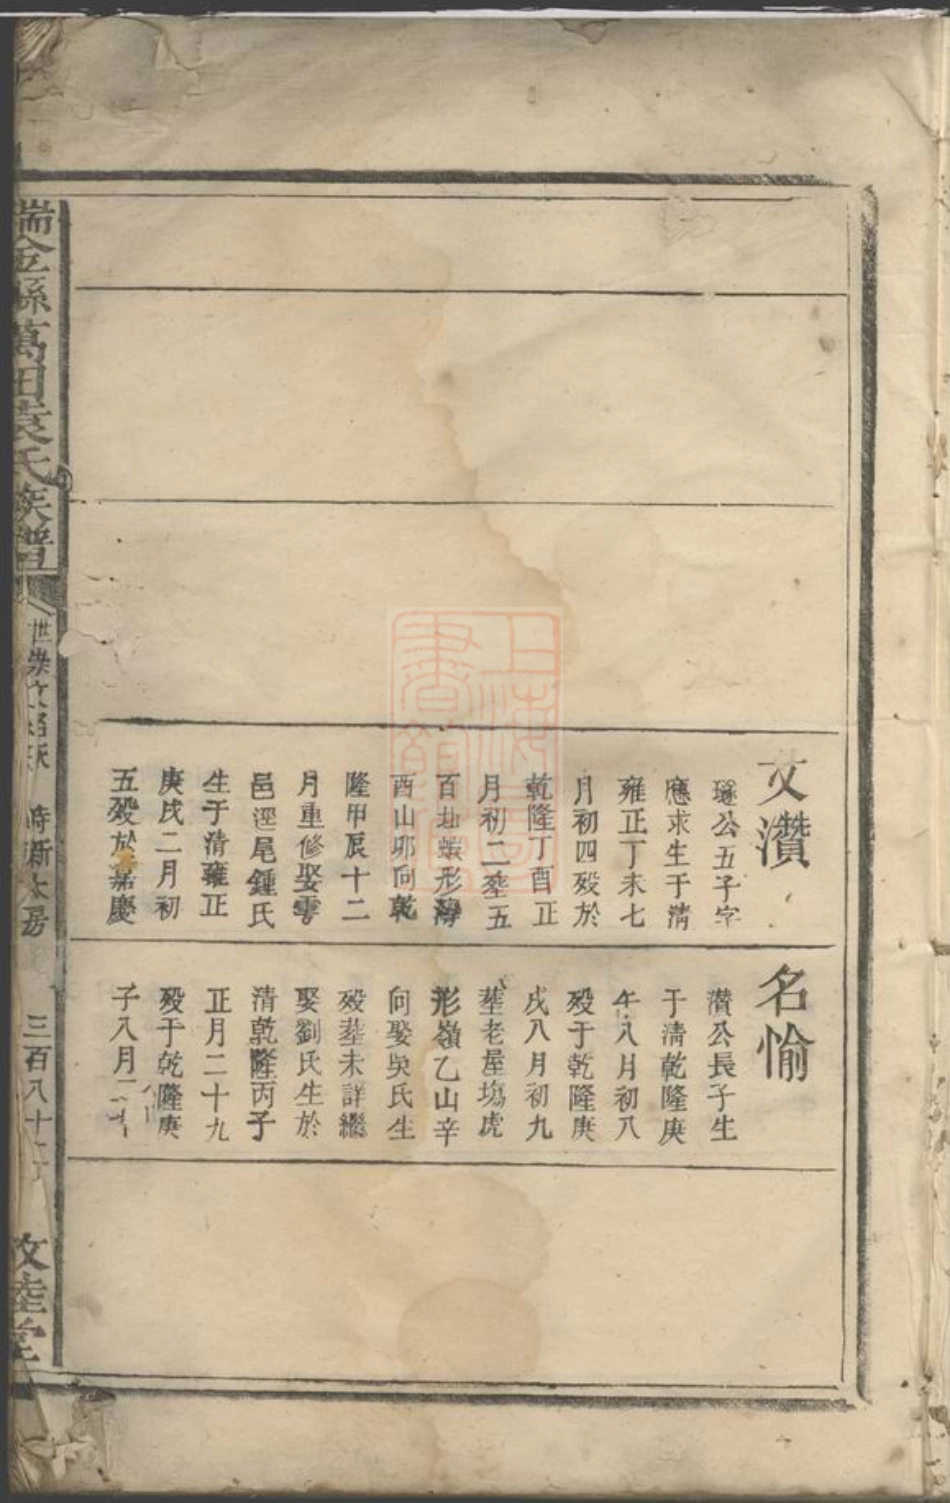 文瓚
璲公五子字
應求生于清
雍正丁未七
月初四歿於
乾隆丁酉正
月初二塟五
百坵蝦形海
酉山卯向乾
隆甲辰十二
月重修娶雩
邑逕尾鍾氏
生于清雍正
庚戌二月初
五歿於嘉慶
名愉
瓚公長子生
于清乾隆庚
午八月初八
歿于乾隆庚
戌八月初九
塟老屋塲虎
形嶺乙山辛
向娶吳氏生
歿塟未詳繼
娶劉氏生於
清乾隆丙子
正月二十九
歿于乾隆庚
子八月二十
瑞金縣萬田袁氏族譜
世
三百八十
敦睦堂
上海圖書館藏